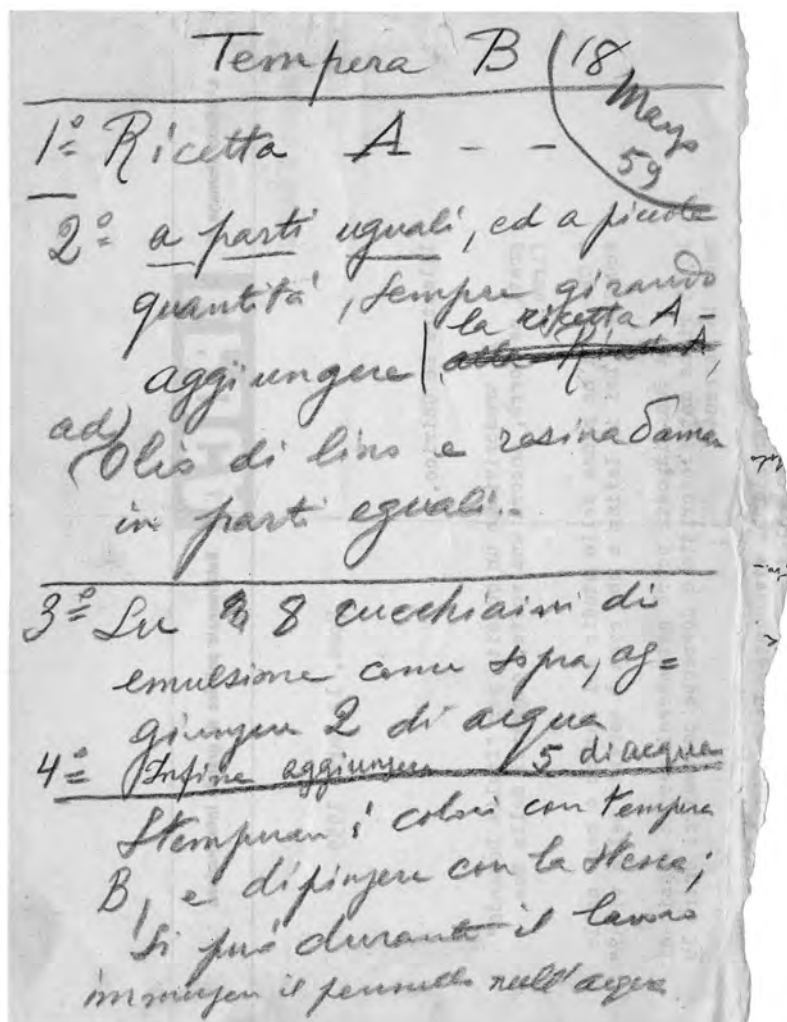 Tempera B (18
Mayo
59
1º Ricetta A - -
2º a parti uguali, ed a piccole
quantità, sempre girando
la ricetta A -
aggiungere | alla Ricetta A,
ad) Olio di lino e resina Damar
in parti eguali..
3º Su 8 cucchiaini di
emulsione come sopra, ag=
giungere 2 di acqua
4º Infine aggiungere 5 di acqua
Stemperare i colori con tempera
B, e dipingere con la stessa;
Si può durante il lavoro
immergere il pennello nell'acqua